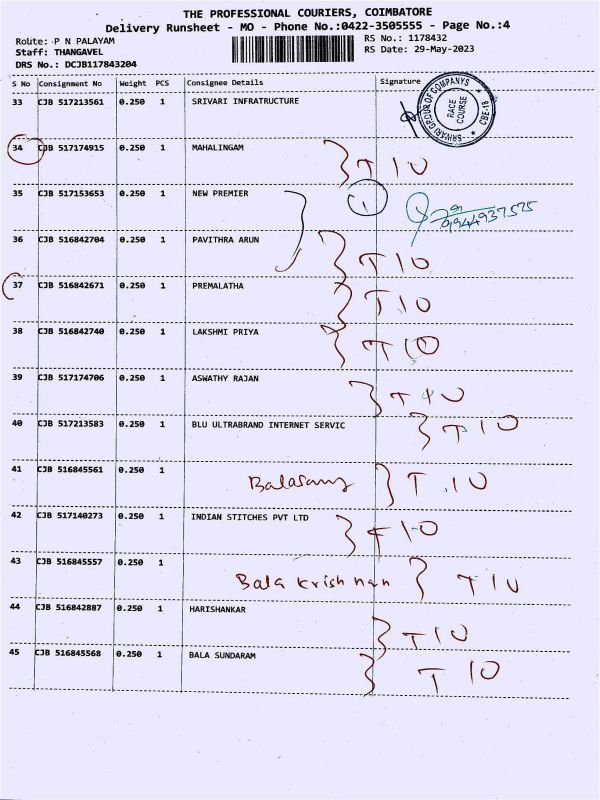 THE PROFESSIONAL COURIERS, COIMBATORE
Delivery Runsheet - MO - Phone No.:0422-3505555 - Page No.:4
Route: P N PALAYAM
RS No.: 1178432
Staff: THANGAVEL
RS Date: 29-May-2023
DRS No.: DCJB117843204
S No Consignment No Weight PCS Consignee Details Signature
33 CJB 517213561 0.250 1 SRIVARI INFRATRUCTURE
SRIHARI GROUP OF COMPANYS
RACE COURSE
CBE-18
34 CJB 517174915 0.250 1 MAHALINGAM T 10
35 CJB 517153653 0.250 1 NEW PREMIER 1
9944937575
36 CJB 516842704 0.250 1 PAVITHRA ARUN T 10
37 CJB 516842671 0.250 1 PREMALATHA T 10
38 CJB 516842740 0.250 1 LAKSHMI PRIYA T 10
39 CJB 517174706 0.250 1 ASWATHY RAJAN T 10
40 CJB 517213583 0.250 1 BLU ULTRABRAND INTERNET SERVIC T 10
41 CJB 516845561 0.250 1 T 10
42 CJB 517140273 0.250 1 INDIAN STITCHES PVT LTD T 10
43 CJB 516845557 0.250 1 Bala krishnan T 10
44 CJB 516842887 0.250 1 HARISHANKAR T 10
45 CJB 516845568 0.250 1 BALA SUNDARAM T 10